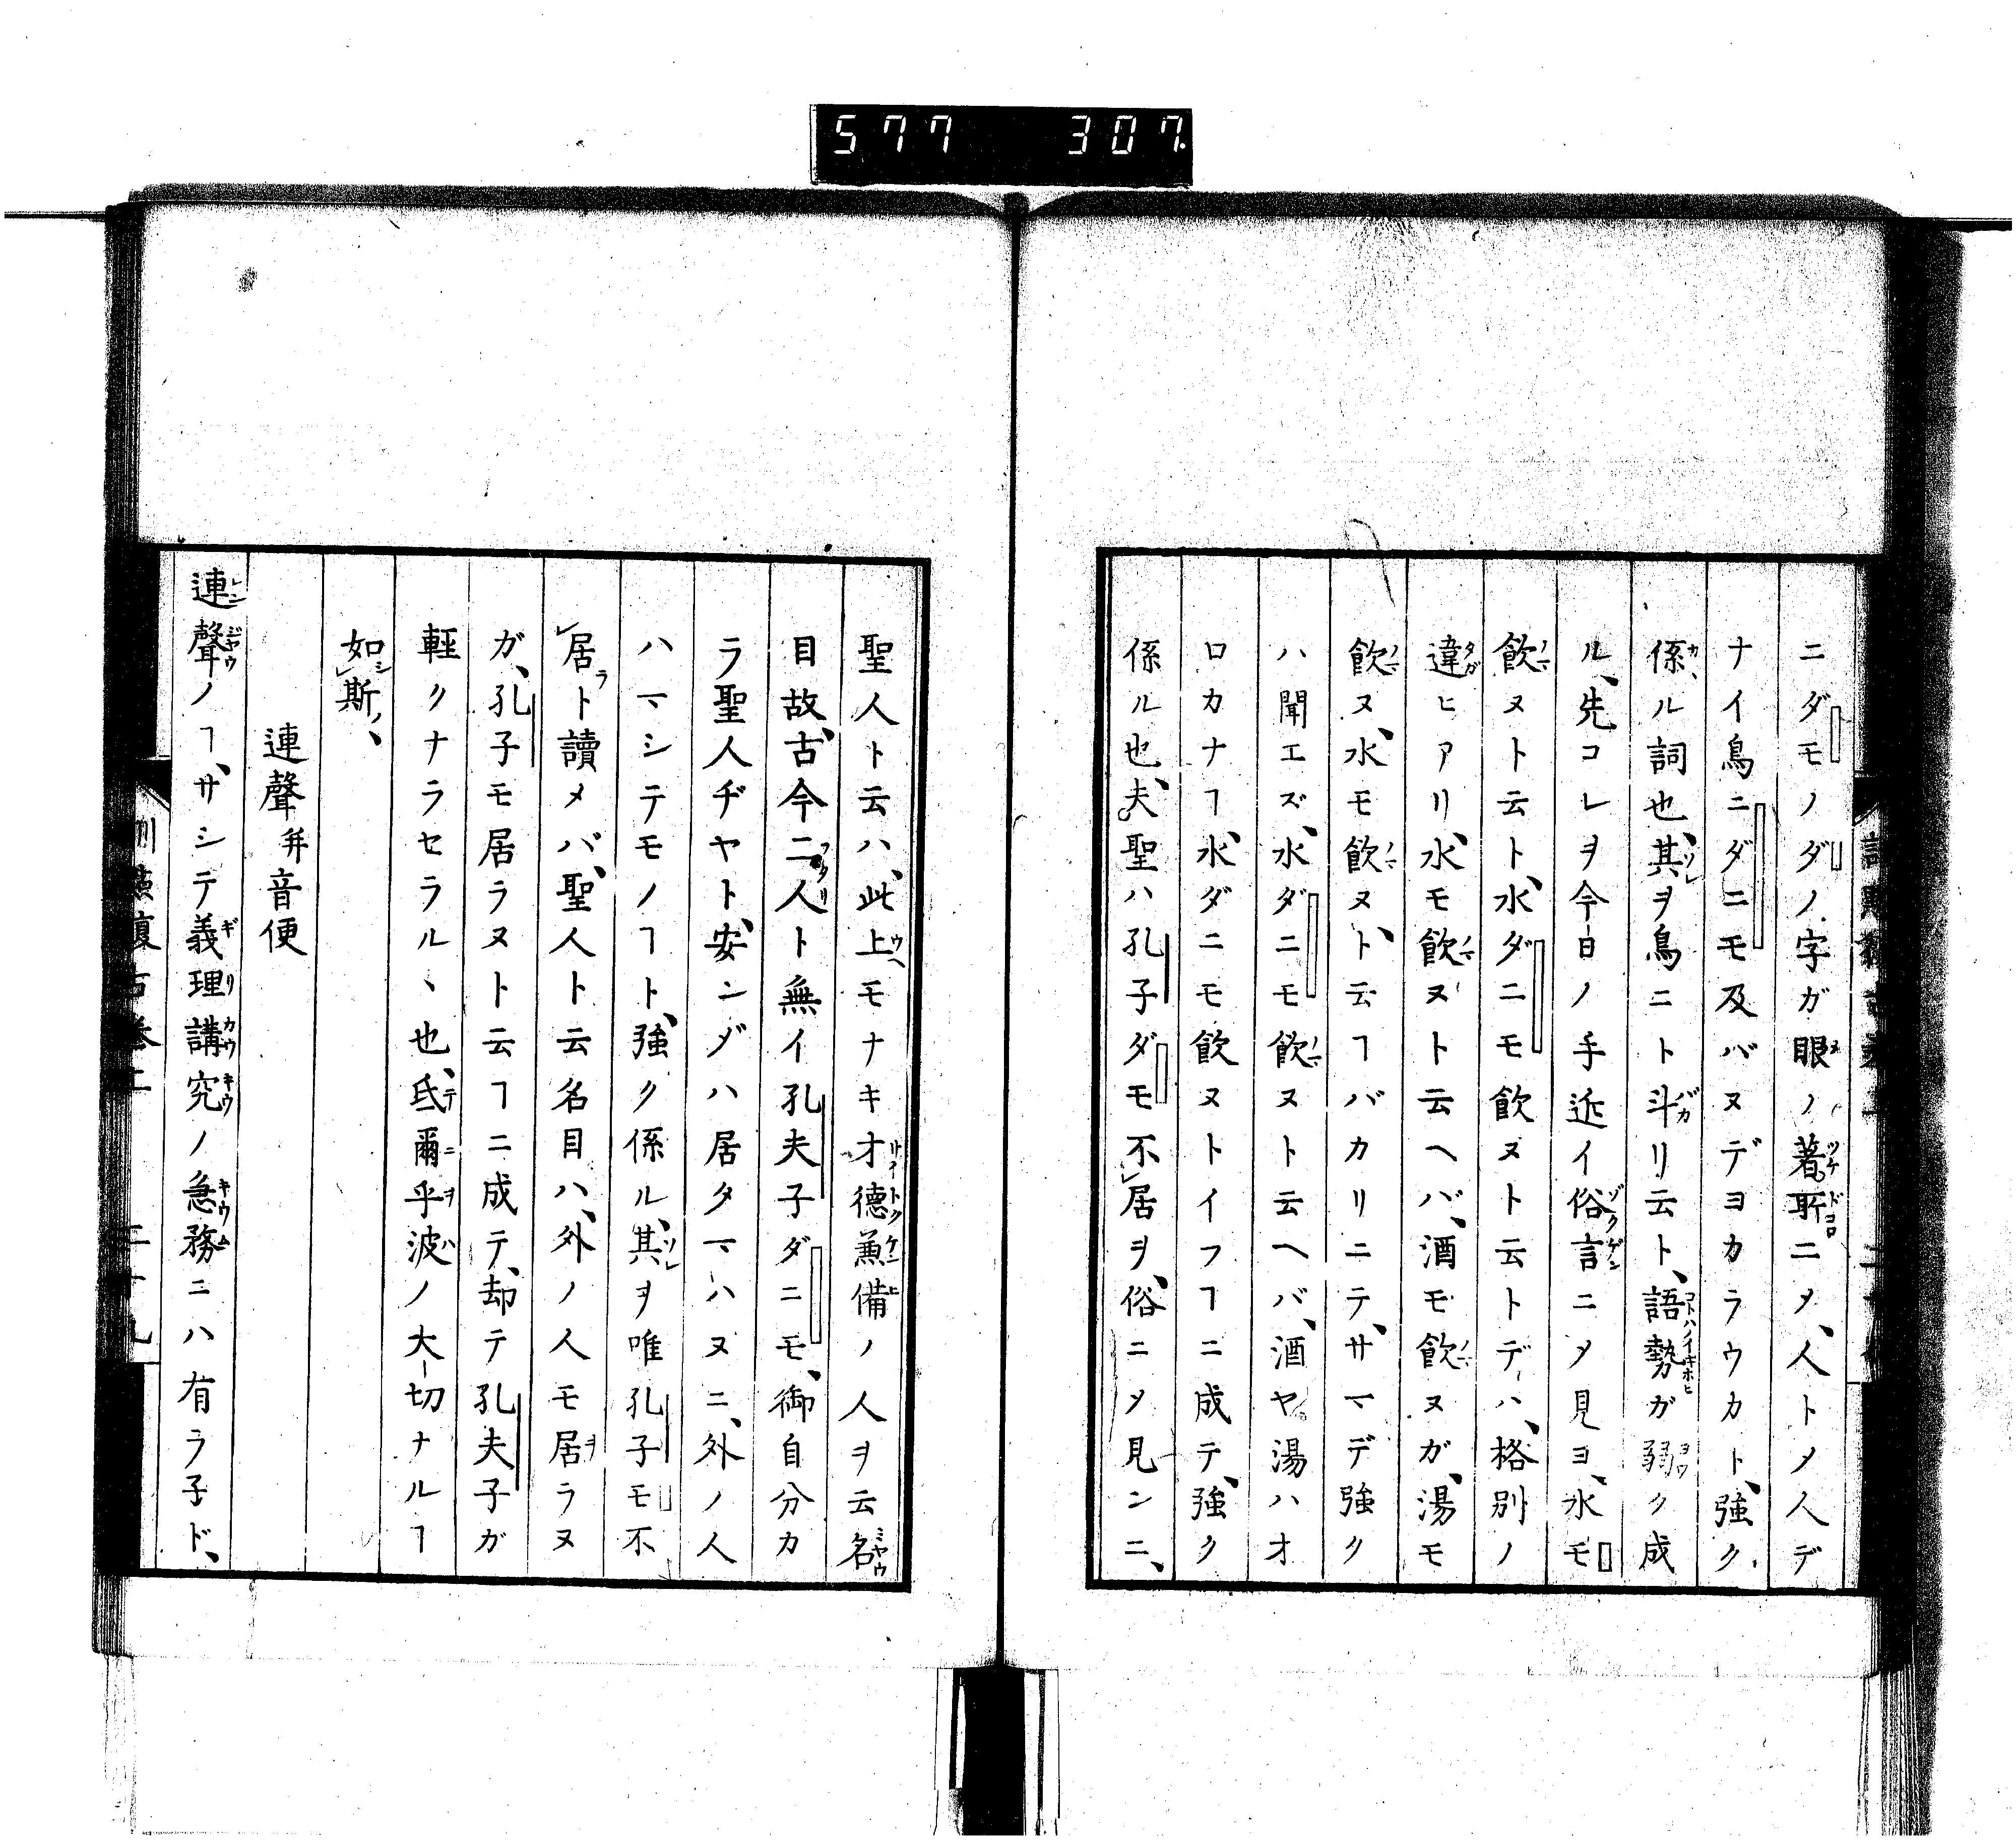 577 307
ニダモノダノ字ガ眼ノ著所ニメ、人トメ人デ
ナイ鳥ニダニモ及バヌデヨカラウカト、強ク
係ル詞也、其ヲ鳥ニト斗リ云ト、語勢ガ弱ク成
ル、先コレヲ今日ノ手近イ俗言ニメ見ヨ、水モ
飲ヌト云ト、水ダニモ飲ヌト云トデハ、格別ノ
違ヒアリ、水モ飲ヌト云ヘバ、酒モ飲ヌガ、湯モ
飲ヌ、水モ飲ヌ、ト云ヿバカリニテ、サマデ強ク
ハ聞エズ、水ダニモ飲ヌト云ヘバ、酒ヤ湯ハオ
ロカナヿ、水ダニモ飲ヌトイフヿニ成テ、強ク
係ル也、夫聖ハ孔子ダモ不レ居ヲ、俗ニメ見ンニ、
聖人ト云ハ、此上モナキ才徳兼備ノ人ヲ云名
目故、古今二人ト無イ孔夫子ダニモ、御自分カ
ラ聖人ヂヤト、安ンゾハ居タマハヌニ、外ノ人
ハマシテモノヿト、強ク係ル、其ヲ唯孔子モ不
レ居ト讀メバ、聖人ト云名目ハ、外ノ人モ居ラヌ
ガ、孔子モ居ラヌト云ヿニ成テ、却テ孔夫子ガ
軽クナラセラルヽ也、氐爾乎波ノ大切ナルヿ
如レ斯、
連聲并音便
連聲ノヿ、サシテ義理講究ノ急務ニハ有ラ子ド、